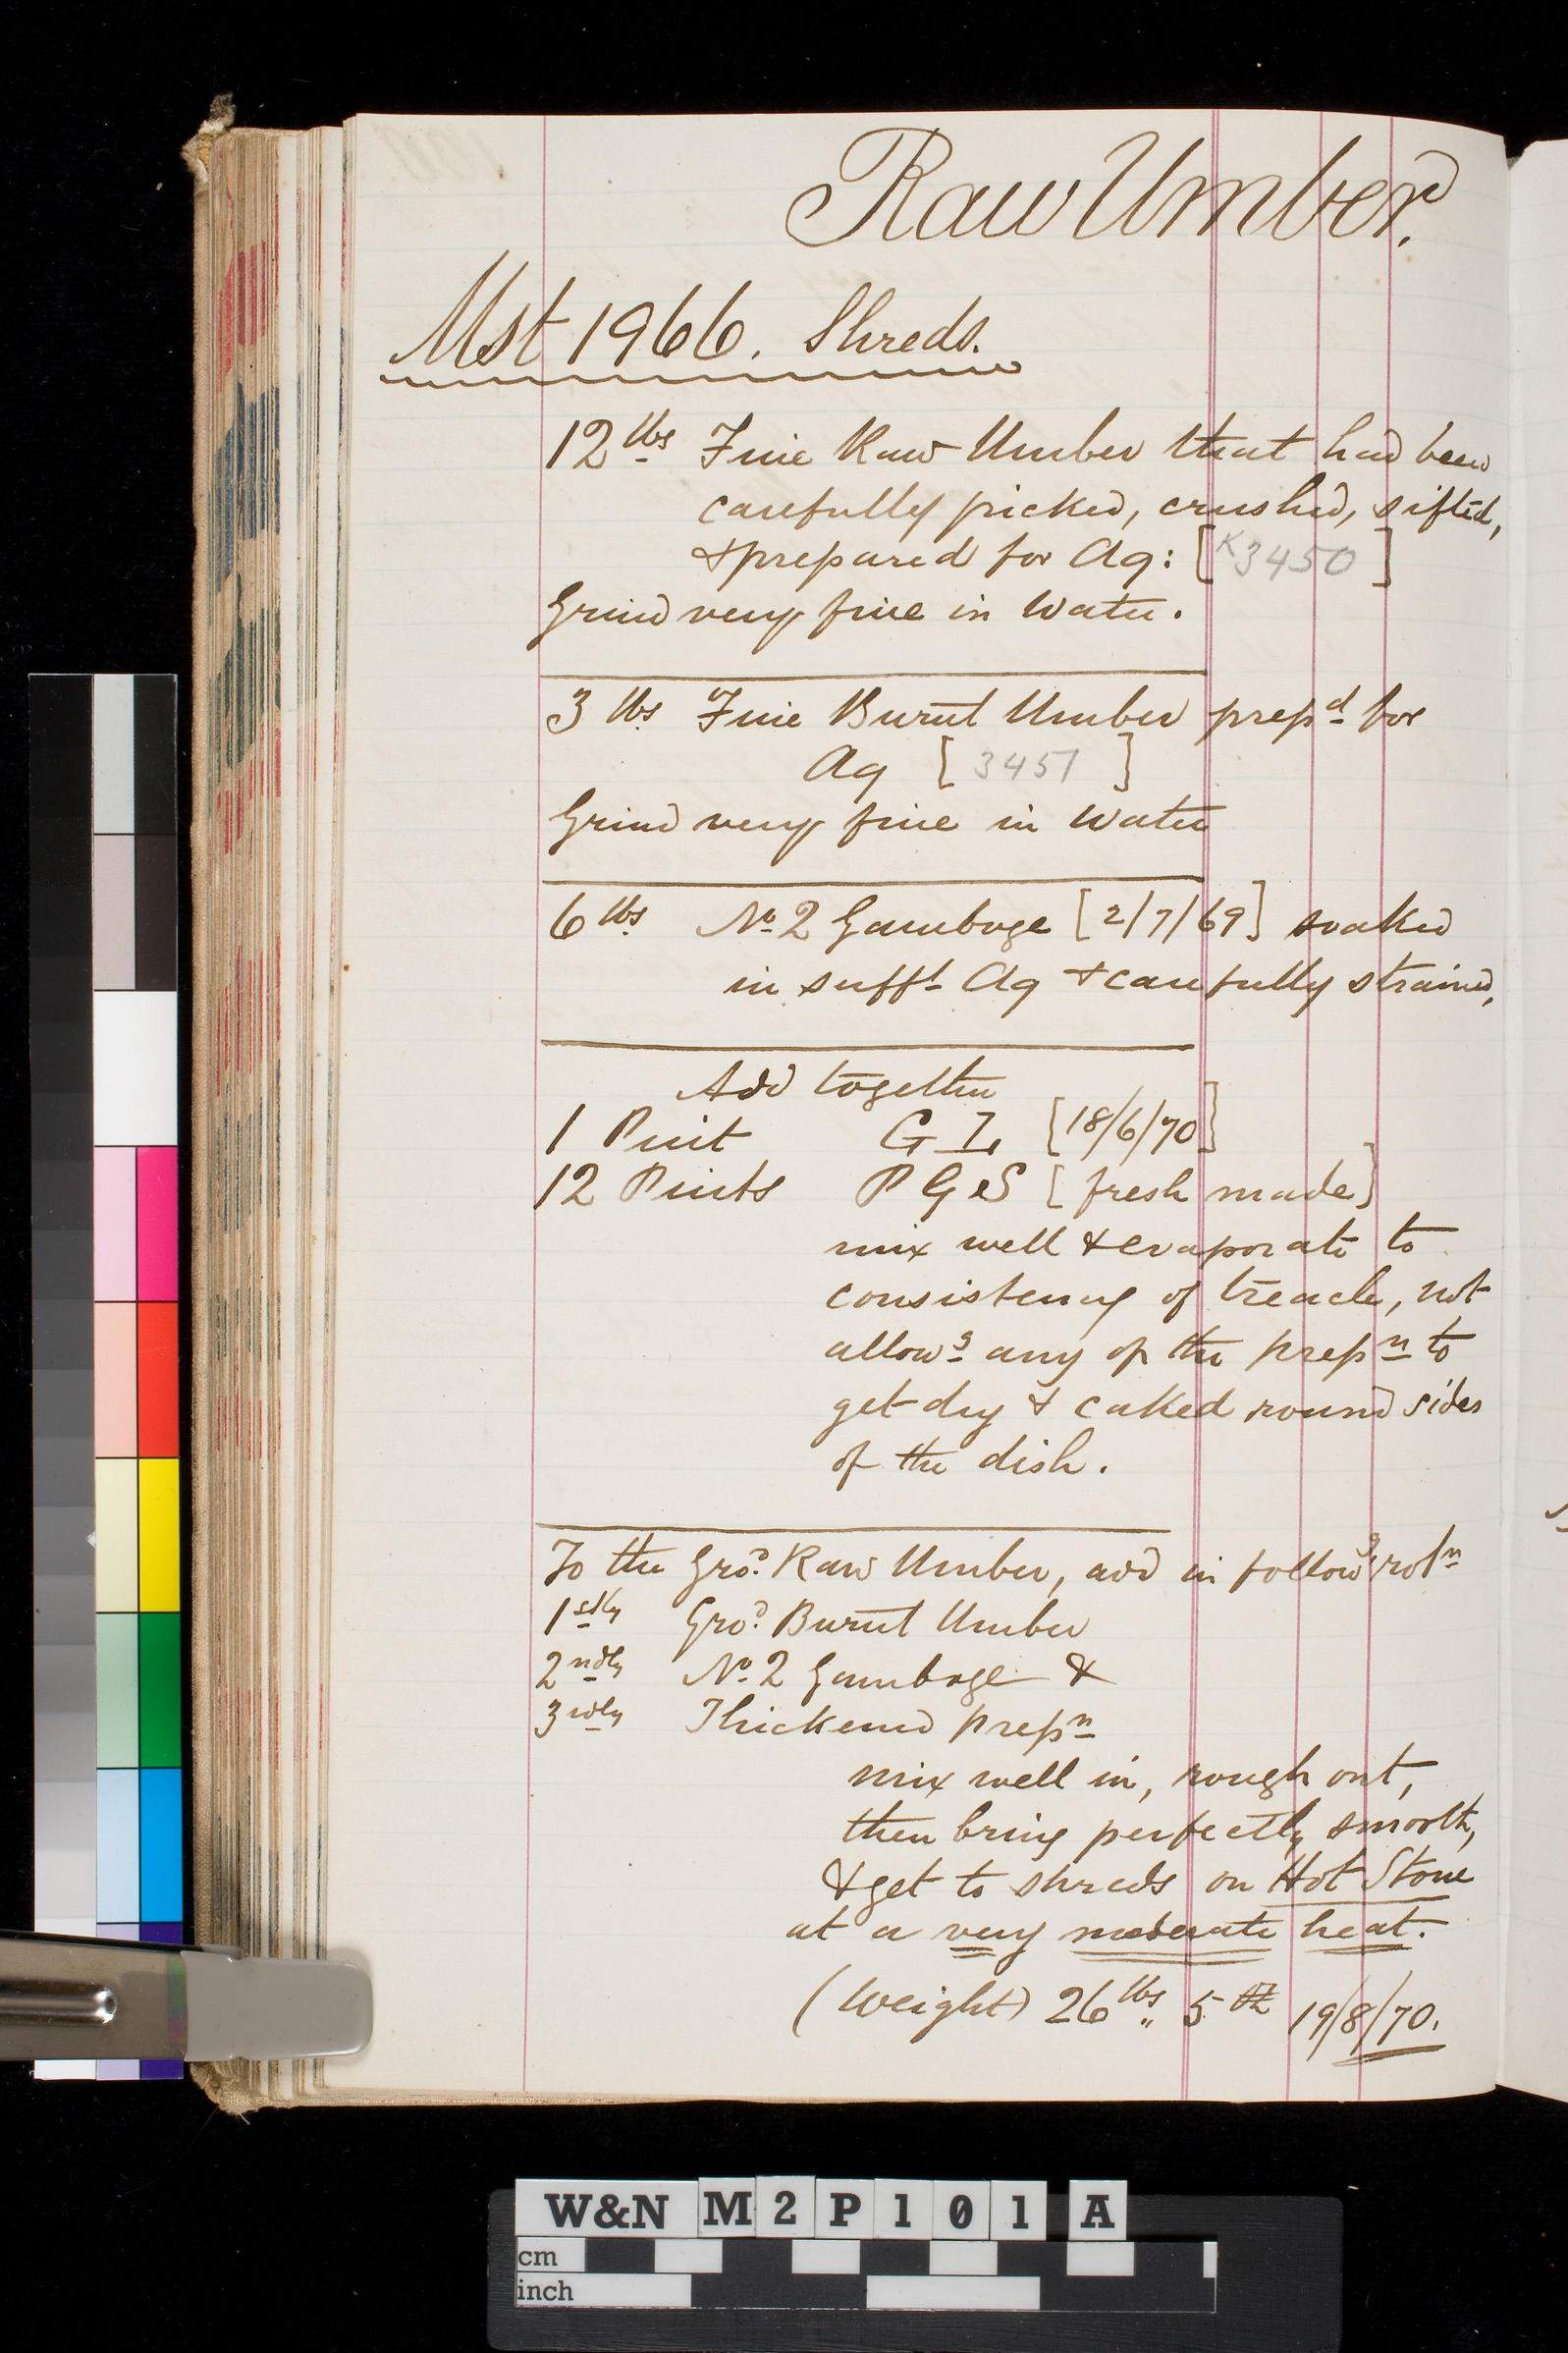 Raw Umber.
Mst 1966. Shreds.
12 lbs Fine Raw Umber that had been
carefully picked, crushed, sifted,
& prepared for Aq: [K3450]
Grind very fine in Water.
3 lbs Fine Burnt Umber prepd for
Aq [3451]
Grind very fine in Water
6 lbs No 2 Gamboge [2/7/69] soaked
in sufft Aq & carefully strained,
Add together
1 Pint G I [18/6/70]
12 Pints P G S [fresh made]
mix well & evaporate to
consistency of treacle, not
allowg any of the prepn to
get dry & caked round sides
of the dish.
To the Grod. Raw Umber, add in followg rotn
1stly Grod. Burnt Umber
2ndly No. 2 Gamboge &
3rdly Thickened prepn
mix well in, rough out,
then bring perfectly smooth,
& get to shreds on Hot Stone
at a very moderate heat.
(Weight) 26 lbs 5 19/8/70.
W&N M2P101A
cm
inch